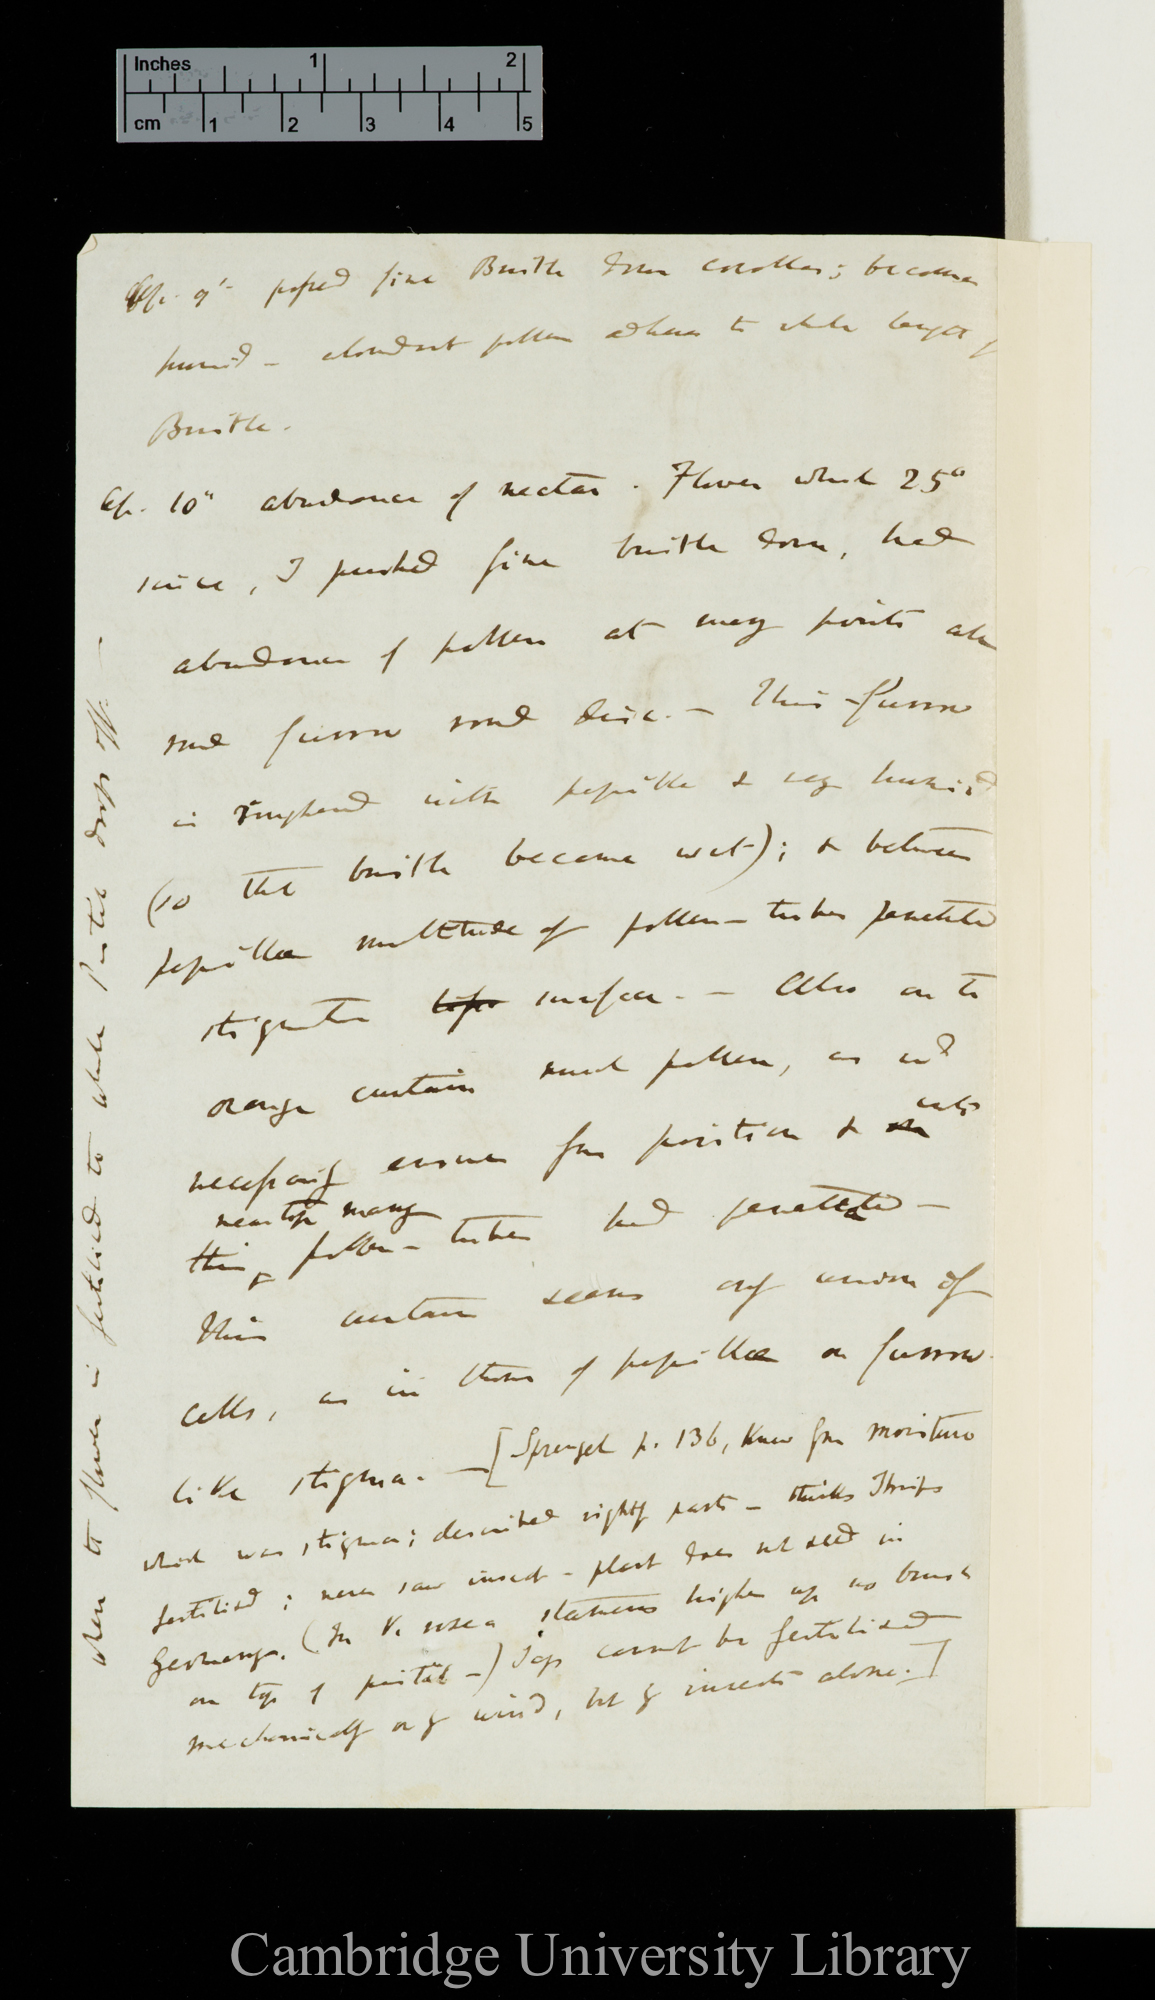 Inches 1 2
cm 1 2 3 4 5
Ap. 9th passed fine Bristle down corollas; becomes
humid — abundant pollen adheres to whole length of
Bristle.
Ap. 10th abundance of nectar. Flower which 25°
since, I pushed fine bristle down, had
abundance of pollen at many points all
round furrow round disc. — This furrow
is with papillæ & very humid
(so that bristle became wet); & between
papillæ multitude of pollen-tubes penetrated
stigmatic surface. — Also on the
orange curtain much pollen, as wd
necessarily ensue from position & into
near top many
this, pollen-tubes had penetrated —
This curtain seems only union of
cells, as in those of papillæ on furrow
like stigma. — [Sprengel p. 136, knew from moisture
which was stigma; described rightly parts — thinks Thrips
fertilised; never saw insect — plant does not seed in
Germany. (In V. rosea stamens higher up no brush
on top of pistil —) Says cannot be fertilised
mechanically or by wind, but by insects alone.]
When the flower is fertilised the whole Pistil drops off. —
Cambridge University Library